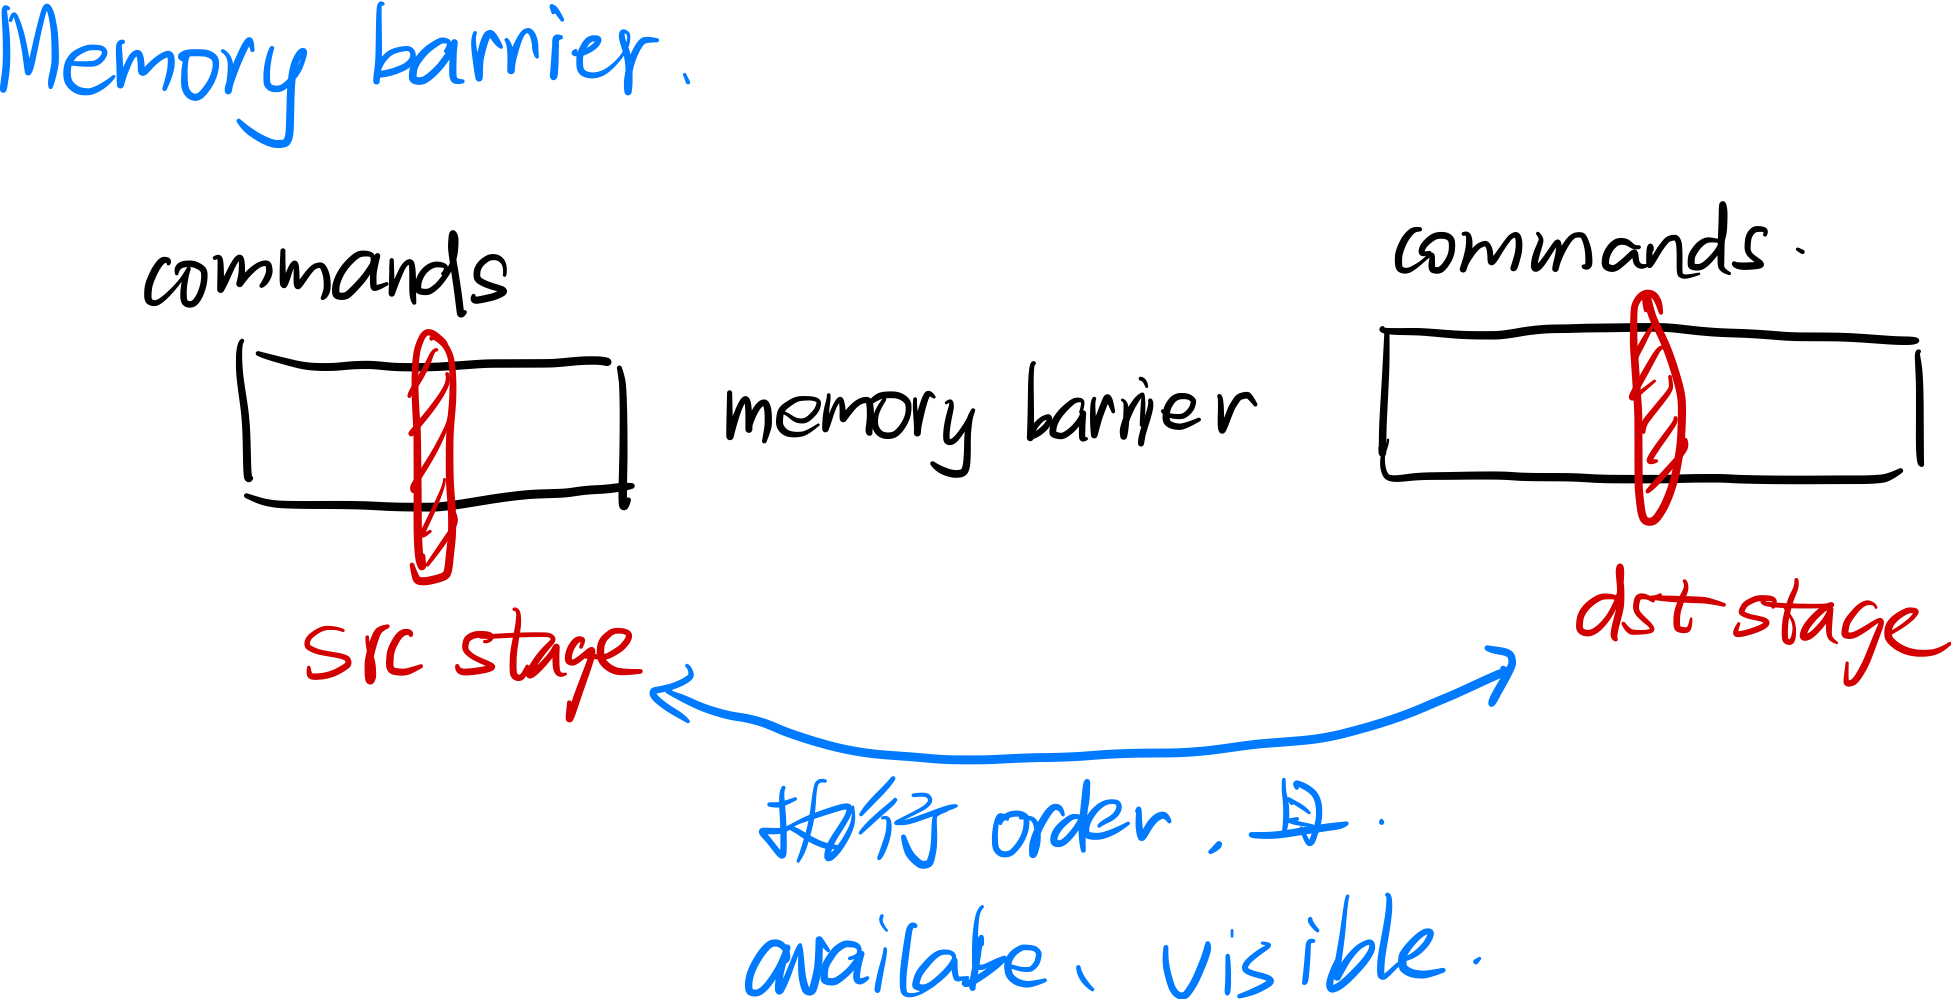 Memory barrier.
commands
commands.
memory barrier
src stage
dst stage
执行 order, 且.
available、visible.